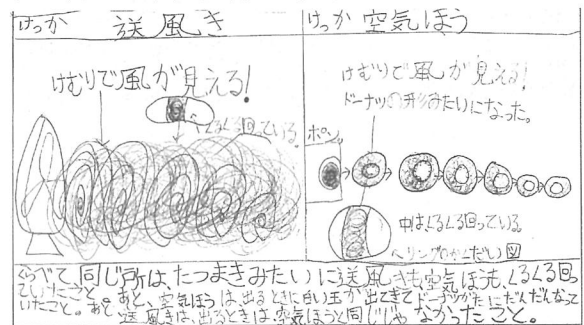 けっか 送風き
けむりで風が見える!
くるくる回っている。
けっか 空気ほう
けむりで風が見える!
ドーナツの形みたいになった。
ポン
中はくるくる回っている。
へリングのかくだい図
くらべて同じ所は、たつまきみたいに送風きも空気ほうも、くるくる回っ
ていたこと。あと、空気ほうは出るときに白い玉が出てきてドーナツがたにだんだんなって
いたこと。あと送風きは、出るときは、空気ほうと同じじゃなかったこと。